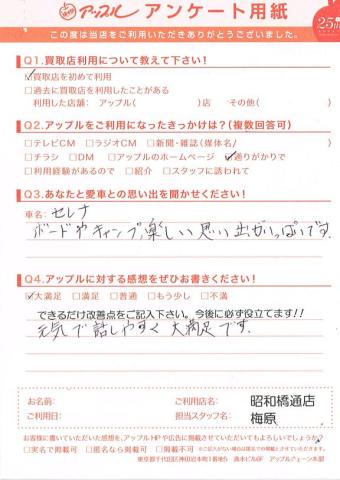 アップル アンケート用紙
25th
この度は当店をご利用いただきありがとうございました。
Q1.買取店利用について教えて下さい!
☑買取店を初めて利用
□過去に買取店を利用したことがある
利用した店舗: アップル( )店 その他( )
Q2.アップルをご利用になったきっかけは?(複数回答可)
□テレビCM □ラジオCM □新聞・雑誌(媒体名/ )
□チラシ □DM □アップルのホームページ ☑通りがかりで
□利用経験があるので □紹介 □スタッフに誘われて
Q3.あなたと愛車との思い出を聞かせください!
車名: セレナ
ボードやキャンプ、楽しい思い出がいっぱいです。
Q4.アップルに対する感想をぜひお書きください!
☑大満足 □満足 □普通 □もう少し □不満
できるだけ改善点をご記入下さい。今後に必ず役立てます!!
元気で話しやすく大満足です。
お名前: ご利用店名: 昭和橋通店
ご利用日: 担当スタッフ名: 梅原
お客様に書いていただいた感想を、アップルHPや広告に掲載させていただいてもよろしいでしょうか?
□実名で掲載可 □匿名なら掲載可 □掲載不可
東京都千代田区神田岩本町1番地5 清水ビル6F アップルチェーン本部